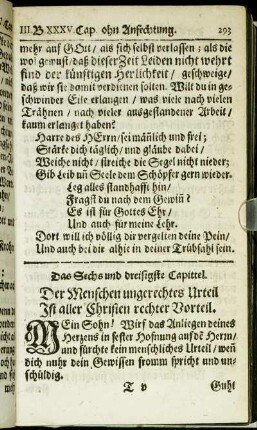 III. B XXXV. Cap. ohn Anfechtung. 293
mehr auf GOtt / als sich selbst verlassen; als die
wol gewust / daß dieser Zeit Leiden nicht wehrt
sind der künftigen Herlichkeit / geschweige /
daß wir sie damit verdienen solten. Wilt du in ge-
schwinder Eile erlangen / was viele nach vielen
Trähnen / nach vieler ausgestandener Arbeit /
kaum erlanget haben?
Harre des HErrn / sei mänlich und frei;
Stärke dich täglich / und gläube dabei /
Weiche nicht / streiche die Segel nicht nieder;
Gib Leib uñ Seele dem Schöpfer gern wieder.
Leg alles standhafft hin /
Fragst du nach dem Gewiñ?
Es ist für Gottes Ehr /
Und auch für meine Lehr.
Dort will ich völlig dir vergelten deine Pein /
Und auch bei dir alhie in deiner Trübsahl sein.
Das Sechs und dreisigste Capittel.
Der Menschen ungerechtes Urteil
Ist aller Christen rechter Vorteil.
MEin Sohn! Wirf das Anliegen deines
Herzens in fester Hofnung auf dẽ Herrn /
und fürchte kein menschliches Urteil / weñ
dich nuhr dein Gewissen fromm spricht und un-
schüldig.
T v Guht